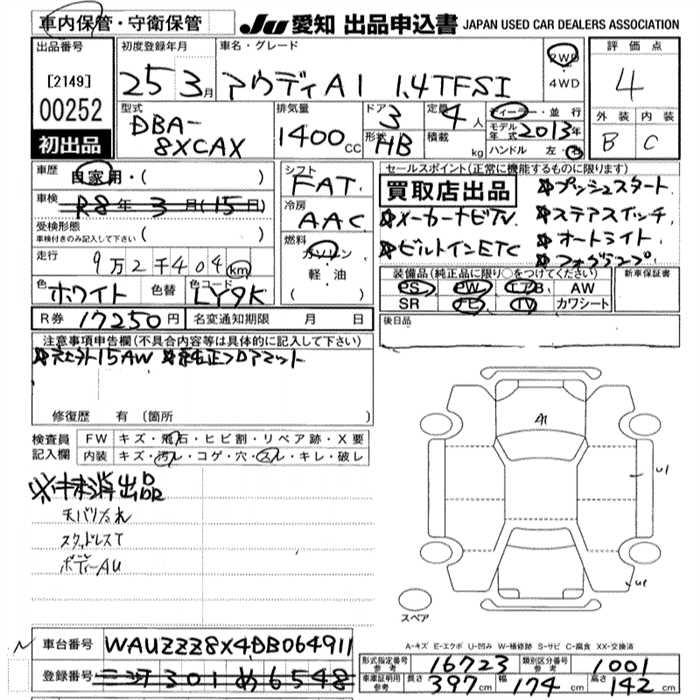 車内保管・守衛保管
JU 愛知 出品申込書 JAPAN USED CAR DEALERS ASSOCIATION
出品番号
[2149]
00252
初出品
初度登録年月
25 3月
車名・グレード
アウディA1 1.4TFSI
2WD
4WD
評価点
4
外装 内装
B C
型式
DBA-
8XCAX
排気量
1400cc
ドア 3
形状 HB
定員 4人
積載 kg
ディーラー・並行
モデル年式 2013年
ハンドル 左・右
車歴 自家用・( )
車検 R8年 3月(15日)
受検形態
車検付きのみ記入して下さい ( )
走行 9万2千404km
色 ホワイト 色替 色コード LY9K
シフト FAT
冷房 AAC
燃料 ガソリン
軽油
セールスポイント(正常に機能するものに限ります)
買取店出品
※プッシュスタート
※メーカーナビTV
※ステアスイッチ
※ビルトインETC
※オートライト
※フォグランプ
装備品(純正品に限り○をつけてください)
PS PW エアB AW
SR ナビ TV カワシート
新車保証書
後日品
R券 17250円 名変通知期限 月 日
注意事項申告欄(不具合内容等は具体的に記入して下さい)
※社外15AW ※純正フロアマット
修復歴 有 〔箇所
検査員
記入欄
FW キズ・飛石・ヒビ割・リペア跡・X要
内装 キズ・汚レ・コゲ・穴・スレ・キレ・破レ
※抹消出品
天バリタレ
スタッドレスT
ボデーAU
A1
U1
U1
スペア
A-キズ E-エクボ U-凹み W-補修跡 S-サビ C-腐食 XX-交換済
車台番号 WAUZZZ8X4DB064911
登録番号 三河 301 め 6548
形式指定番号 参考 16723 類別区分番号 参考 1001
車庫証明用 参考 長さ 397cm 幅 174cm 高さ 142cm